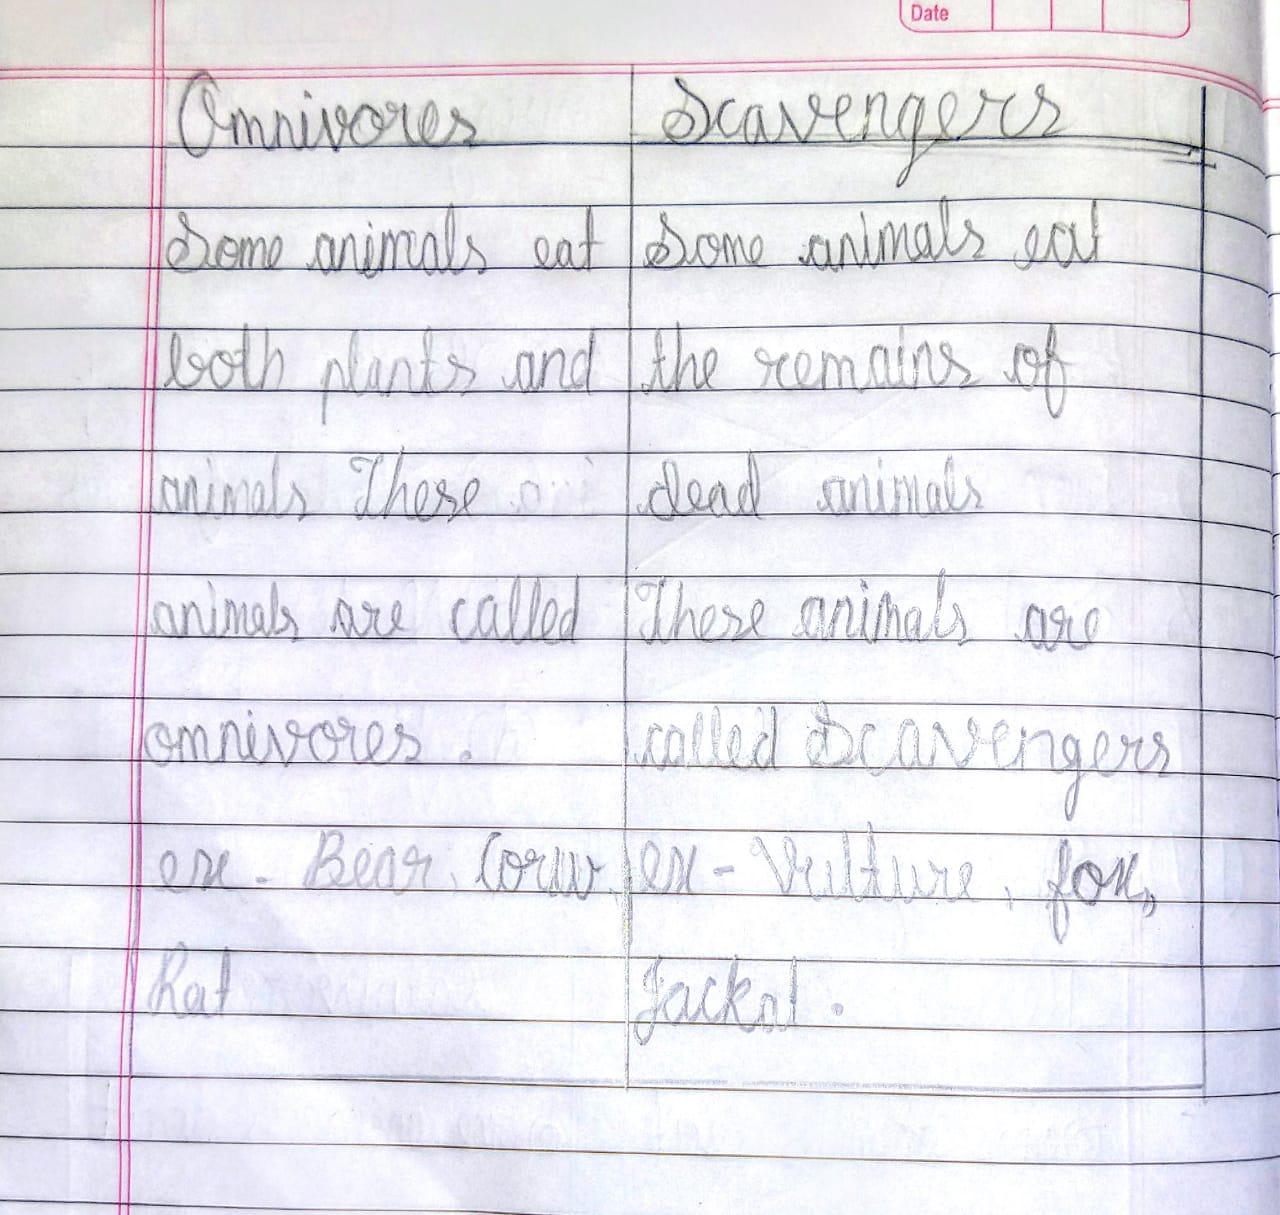 Date
Omnivores
Some animals eat
both plants and
animals These
animals are called
omnivores.
ex - Bear, Corw,
Rat
Scavengers
Some animals eat
the remains of
dead animals
These animals are
called Scavengers
ex - Vulture, fox,
Jackal.